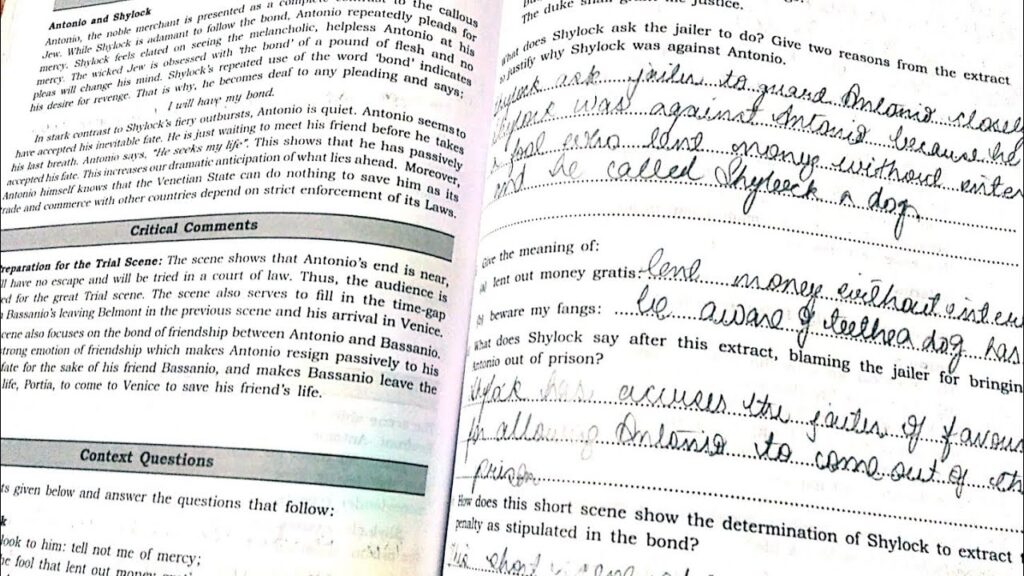 Antonio and Shylock
Antonio, the noble merchant is presented as a complete contrast to the callous
Jew. While Shylock is adamant to follow the bond, Antonio repeatedly pleads for
mercy. Shylock feels elated on seeing the melancholic, helpless Antonio at his
mercy. The wicked Jew is obsessed with 'the bond' of a pound of flesh and no
pleas will change his mind. Shylock's repeated use of the word 'bond' indicates
his desire for revenge. That is why, he becomes deaf to any pleading and says:
I will have my bond.
In stark contrast to Shylock's fiery outbursts, Antonio is quiet. Antonio seems to
have accepted his inevitable fate. He is just waiting to meet his friend before he takes
his last breath. Antonio says, "He seeks my life". This shows that he has passively
accepted his fate. This increases our dramatic anticipation of what lies ahead. Moreover,
Antonio himself knows that the Venetian State can do nothing to save him as its
trade and commerce with other countries depend on strict enforcement of its Laws.
Critical Comments
reparation for the Trial Scene: The scene shows that Antonio's end is near,
ll have no escape and will be tried in a court of law. Thus, the audience is
ed for the great Trial scene. The scene also serves to fill in the time-gap
Bassanio's leaving Belmont in the previous scene and his arrival in Venice.
cene also focuses on the bond of friendship between Antonio and Bassanio.
trong emotion of friendship which makes Antonio resign passively to his
fate for the sake of his friend Bassanio, and makes Bassanio leave the
life, Portia, to come to Venice to save his friend's life.
Context Questions
ts given below and answer the questions that follow:
k
look to him: tell not me of mercy;
he fool that lent out money
The duke justice.
What does Shylock ask the jailer to do? Give two reasons from the extract
to justify why Shylock was against Antonio.
Shylock ask jailer to guard Antonio closel
Shylock was against Antonio because he
fool who lent money without inter
and he called Shylock a dog
Give the meaning of:
lent out money gratis: lend money without inter
beware my fangs: be aware of teeth a dog has
What does Shylock say after this extract, blaming the jailer for bringin
Antonio out of prison?
Shylock has accuses the jailer of favour
for allowing Antonio to come out of th
prison
How does this short scene show the determination of Shylock to extract
penalty as stipulated in the bond?